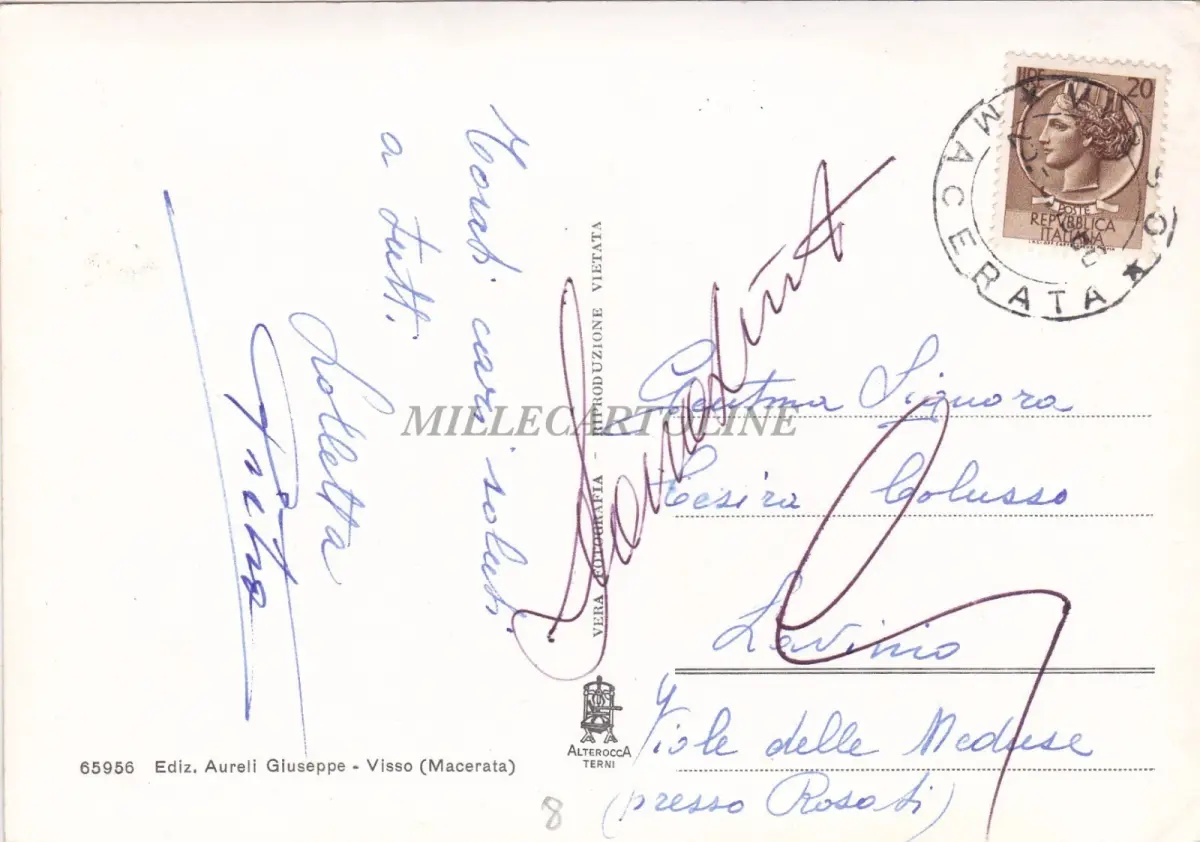 Tonati cari saluti
a tutti.
Lolletta
LIRE 20
POSTE
REPVBBLICA
ITALIANA
VISSO
★ MACERATA ★
VERA FOTOGRAFIA - RIPRODUZIONE VIETATA
MILLECARTOLINE
Gentma Signora
Tesira Colusso
Lavinio
Viale delle Meduse
(presso Rosati)
ALTEROCCA
TERNI
65956 Ediz. Aureli Giuseppe - Visso (Macerata)
8